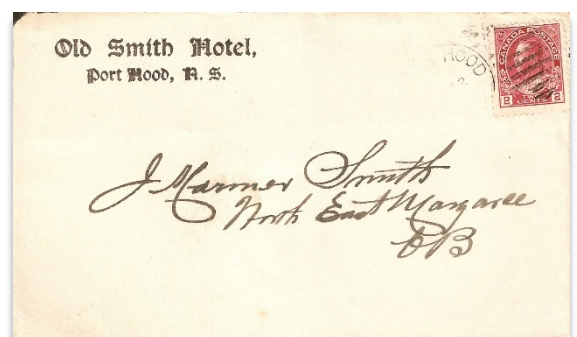 Old Smith Hotel,
Port Hood, N. S.
HOOD
CANADA POSTAGE
2 CENTS 2
J Marmer Smith
North East Margaree
C B